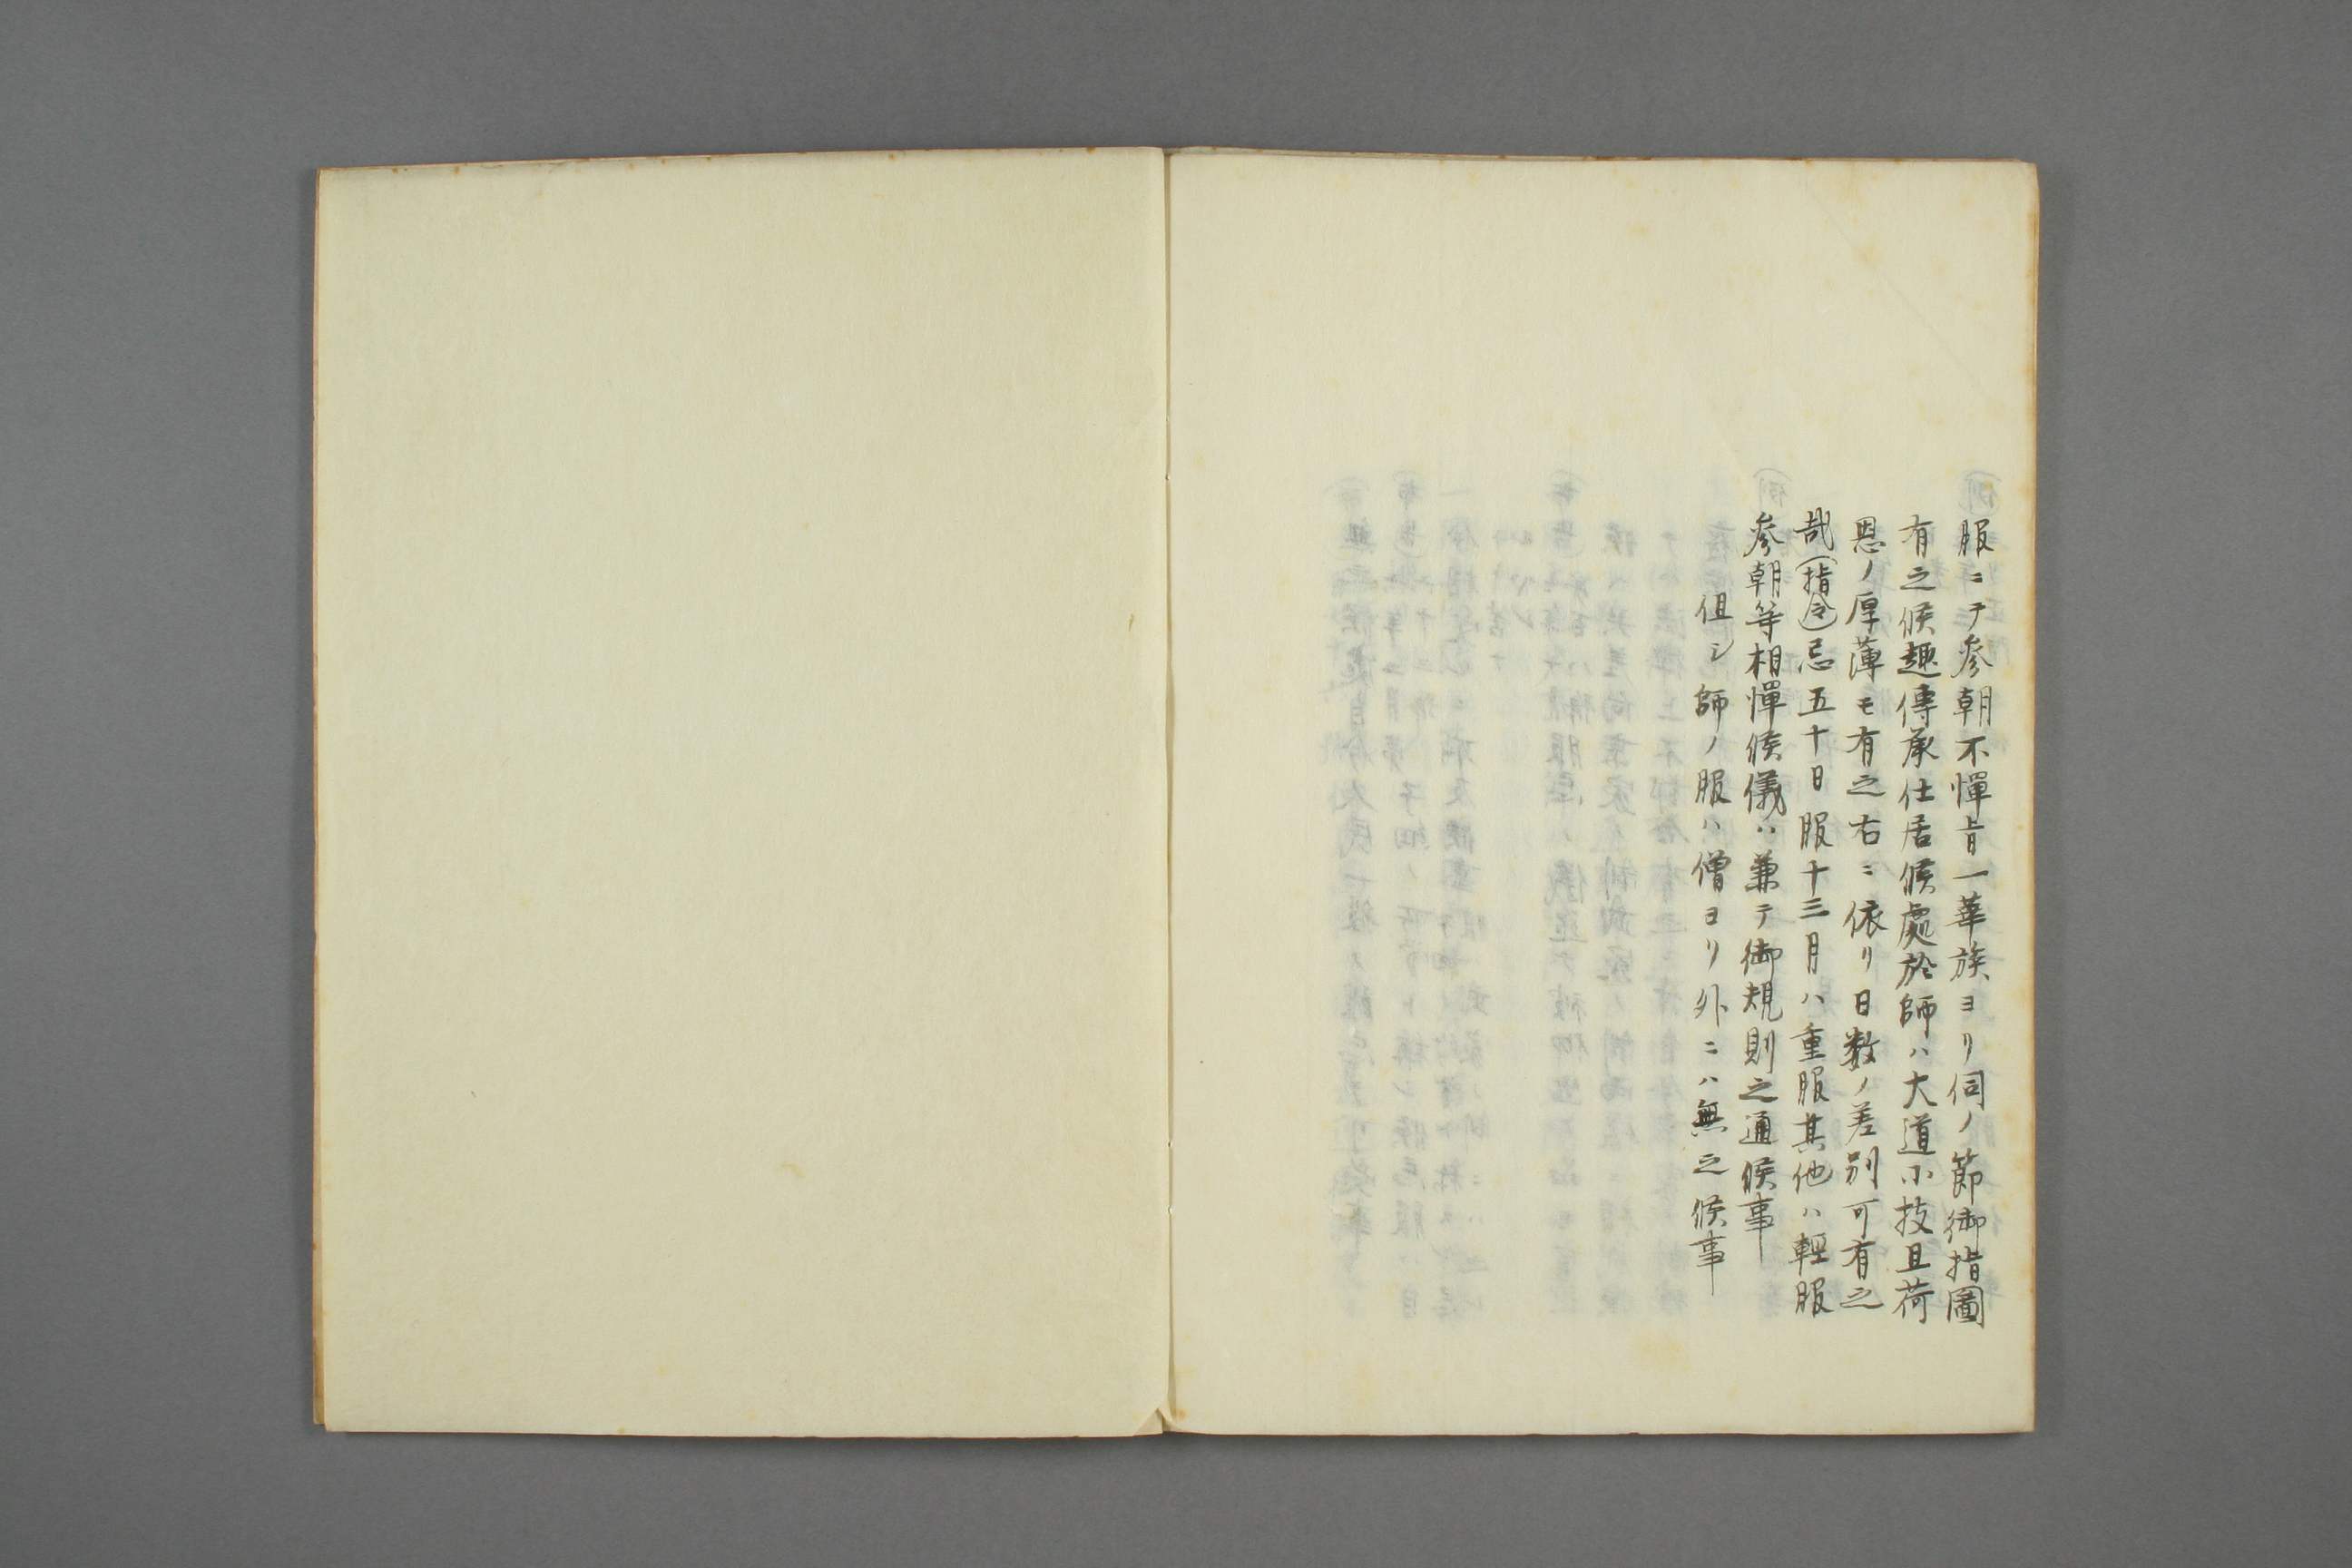 服ニテ參朝不憚旨一華族ヨリ伺ノ節御指圖
有之候趣傳承仕居候處於師ハ大道小技且荷
恩ノ厚薄モ有之右ニ依リ日数ノ差別可有之
哉（指令）忌五十日服十三月ハ重服其他ハ輕服
參朝等相憚候儀ハ兼テ御規則之通候事
但シ師ノ服ハ僧ヨリ外ニハ無之候事